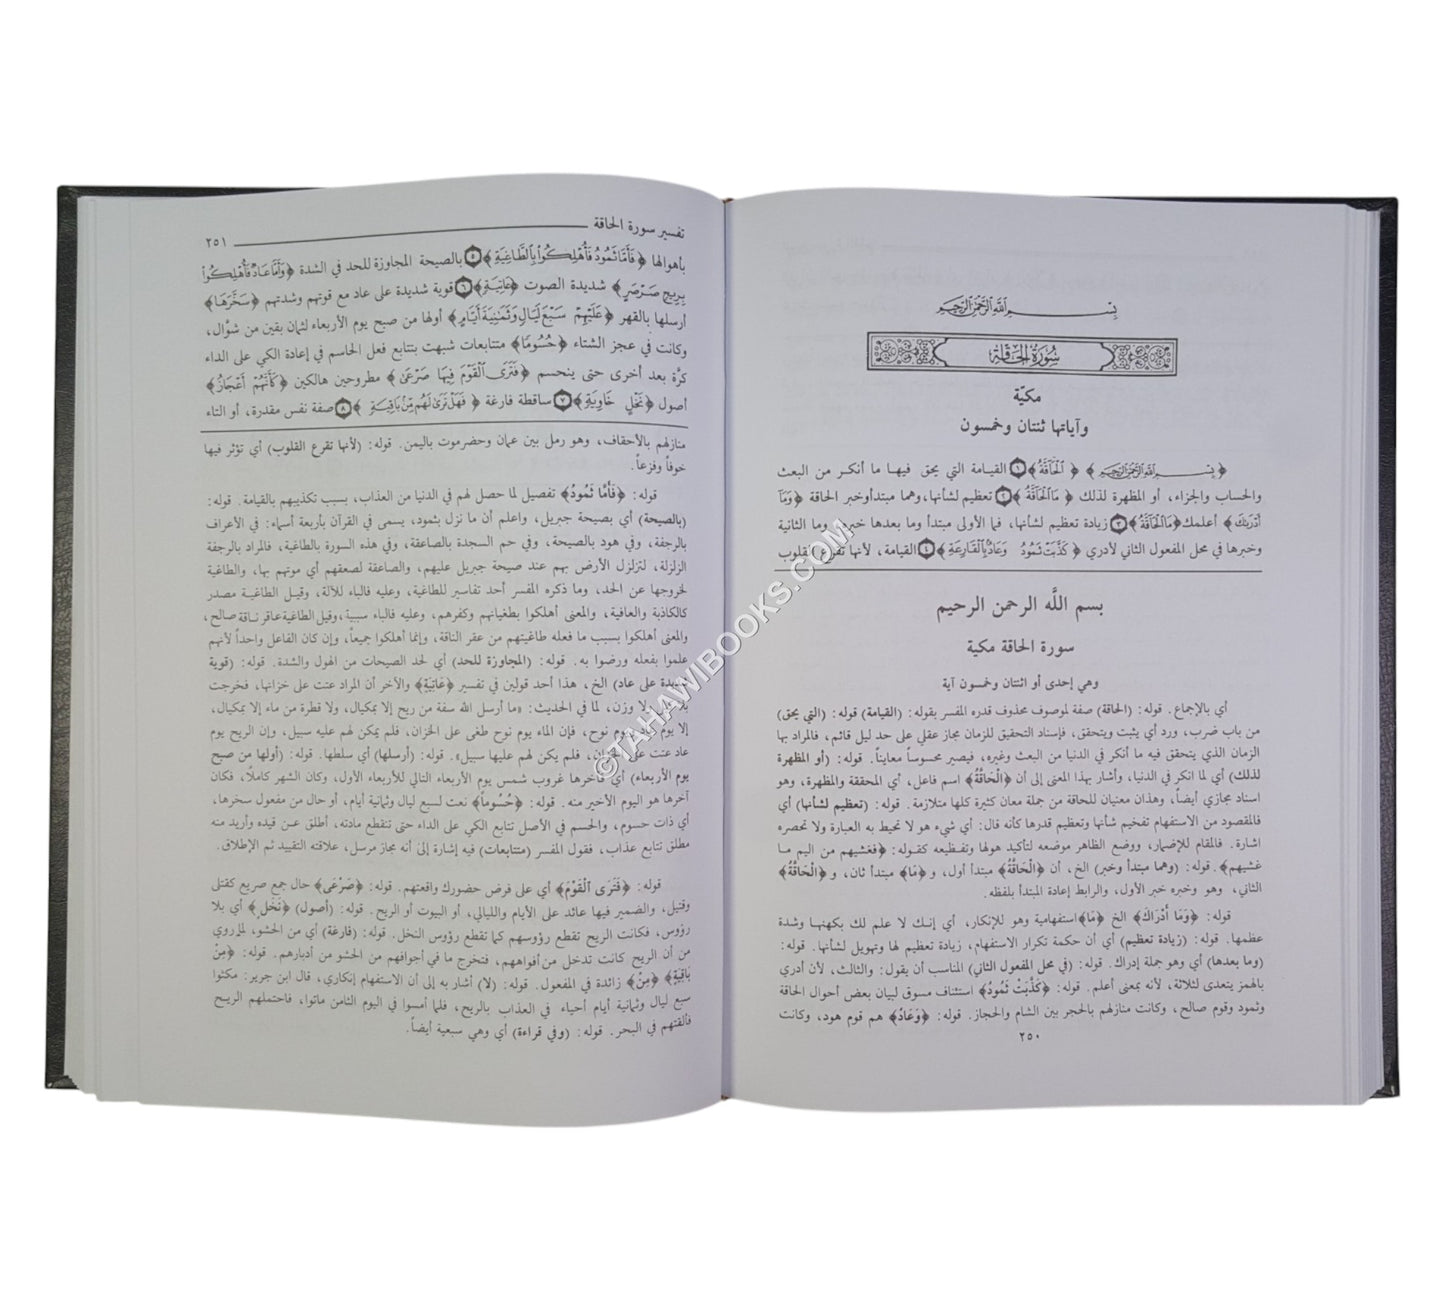 بِسْمِ اللَّهِ الرَّحْمَنِ الرَّحِيمِ
سُورَةُ الْحَاقَّةِ
مكيّة
وآياتها ثنتان وخمسون
﴿بِسْمِ اللَّهِ الرَّحْمَنِ الرَّحِيمِ﴾ ﴿الْحَاقَّةُ﴾ ١ القيامة التي يحق فيها ما أنكر من البعث
والحساب والجزاء، أو المظهرة لذلك ﴿مَا الْحَاقَّةُ﴾ ٢ تعظيم لشأنها، وهما مبتدأ وخبر الحاقة ﴿وَمَا
أَدْرَىٰكَ﴾ أعلمك ﴿مَا الْحَاقَّةُ﴾ ٣ زيادة تعظيم لشأنها، فما الأولى مبتدأ وما بعدها خبره، وما الثانية
وخبرها في محل المفعول الثاني لأدري ﴿كَذَّبَتْ ثَمُودُ وَعَادٌ بِالْقَارِعَةِ﴾ ٤ القيامة، لأنها تقرع القلوب
بسم اللَّه الرحمن الرحيم
سورة الحاقة مكية
وهي إحدى أو اثنتان وخمسون آية
أي بالإجماع. قوله: (الحاقة) صفة لموصوف محذوف قدره المفسر بقوله: (القيامة) قوله: (التي يحق)
من باب ضرب، ورد أي يثبت ويتحقق، فإسناد التحقيق للزمان مجاز عقلي على حد ليل قائم، فالمراد بها
الزمان الذي يتحقق فيه ما أنكر في الدنيا من البعث وغيره، فيصير محسوساً معايناً. قوله: (أو المظهرة
لذلك) أي لما انكر في الدنيا، وأشار بهذا المعنى إلى أن ﴿الْحَاقَّةُ﴾ اسم فاعل، أي المحققة والمظهرة، وهو
اسناد مجازي أيضاً، وهذان معنيان للحاقة من جملة معان كثيرة كلها متلازمة. قوله: (تعظيم لشأنها) أي
فالمقصود من الاستفهام تفخيم شأنها وتعظيم قدرها كأنه قال: أي شيء هو لا تحيط به العبارة ولا تحصره
اشارة. فالمقام للإضمار، ووضع الظاهر موضعه لتأكيد هولها وتفظيعه كقوله: ﴿فغشيهم من اليم ما
غشيهم﴾. قوله: (وهما مبتدأ وخبر) الخ، أن ﴿الْحَاقَّةُ﴾ مبتدأ أول، و ﴿مَا﴾ مبتدأ ثان، و ﴿الْحَاقَّةُ﴾
الثاني، وهو وخبره خبر الأول، والرابط إعادة المبتدأ بلفظه.
قوله: ﴿وَمَا أَدْرَاكَ﴾ الخ ﴿مَا﴾ استفهامية وهو للإنكار، أي إنك لا علم لك بكنهها وشدة
عظمها. قوله: (زيادة تعظيم) أي أن حكمة تكرار الاستفهام، زيادة تعظيم لها وتهويل لشأنها. قوله:
(وما بعدها) أي وهو جملة إدراك. قوله: (في محل المفعول الثاني) المناسب أن يقول: والثالث، لأن أدري
بالهمز يتعدى لثلاثة، لأنه بمعنى أعلم. قوله: ﴿كَذَّبَتْ ثَمُودُ﴾ استئناف مسوق لبيان بعض أحوال الحاقة
وثمود وقوم صالح، وكانت منازلهم بالحجر بين الشام والحجاز. قوله: ﴿وَعَادٌ﴾ هم قوم هود، وكانت
٢٥٠
تفسير سورة الحاقة ٢٥١
بأهوالها ﴿فَأَمَّا ثَمُودُ فَأُهْلِكُوا بِالطَّاغِيَةِ﴾ ٥ بالصيحة المجاوزة للحد في الشدة ﴿وَأَمَّا عَادٌ فَأُهْلِكُوا
بِرِيحٍ صَرْصَرٍ﴾ شديدة الصوت ﴿عَاتِيَةٍ﴾ ٦ قوية شديدة على عاد مع قوتهم وشدتهم ﴿سَخَّرَهَا﴾
أرسلها بالقهر ﴿عَلَيْهِمْ سَبْعَ لَيَالٍ وَثَمَانِيَةَ أَيَّامٍ﴾ أولها من صبح يوم الأربعاء لثمان بقين من شوّال،
وكانت في عجز الشتاء ﴿حُسُومًا﴾ متتابعات شبهت بتتابع فعل الحاسم في إعادة الكي على الداء
كرَّة بعد أخرى حتى ينحسم ﴿فَتَرَى الْقَوْمَ فِيهَا صَرْعَىٰ﴾ مطروحين هالكين ﴿كَأَنَّهُمْ أَعْجَازُ﴾
أصول ﴿نَخْلٍ خَاوِيَةٍ﴾ ٧ ساقطة فارغة ﴿فَهَلْ تَرَىٰ لَهُم مِّن بَاقِيَةٍ﴾ ٨ صفة نفس مقدرة، أو التاء
منازلهم بالأحقاف، وهو رمل بين عمان وحضرموت باليمن. قوله: (لأنها تقرع القلوب) أي تؤثر فيها
خوفاً وفزعاً.
قوله: ﴿فَأَمَّا ثَمُودُ﴾ تفصيل لما حصل لهم في الدنيا من العذاب، بسبب تكذيبهم بالقيامة. قوله:
(بالصيحة) أي بصيحة جبريل، واعلم أن ما نزل بثمود، يسمى في القرآن بأربعة أسماء: في الأعراف
بالرجفة، وفي هود بالصيحة، وفي حم السجدة بالصاعقة، وفي هذه السورة بالطاغية، فالمراد بالرجفة
الزلزلة، لتزلزل الأرض بهم عند صيحة جبريل عليهم، والصاعقة لصعقهم أي موتهم بها، والطاغية
لخروجها عن الحد، وما ذكره المفسر أحد تفاسير للطاغية، وعليه فالباء للآلة، وقيل الطاغية مصدر
كالكاذبة والعافية، والمعنى أهلكوا بطغيانهم وكفرهم، وعليه فالباء سببية، وقيل الطاغية عاقر ناقة صالح،
والمعنى أهلكوا بسبب ما فعله طاغيتهم من عقر الناقة، وإنما أهلكوا جميعاً، وإن كان الفاعل واحداً لأنهم
علموا بفعله ورضوا به. قوله: (المجاوزة للحد) أي لحد الصيحات من الهول والشدة. قوله: (قوية
شديدة على عاد) الخ، هذا أحد قولين في تفسير ﴿عَاتِيَةٍ﴾ والآخر أن المراد عتت على خزانها، فخرجت
ولا وزن، لما في الحديث: «ما أرسل الله سفة من ريح إلا بمكيال، ولا قطرة من ماء إلا بمكيال،
إلا يوم يوم نوح، فإن الماء يوم نوح طغى على الخزان، فلم يكن لهم عليه سبيل، وإن الريح يوم
عاد عتت على الخزان، فلم يكن لهم عليها سبيل». قوله: (أرسلها) أي سلطها. قوله: (أولها من صبح
يوم الأربعاء) أي وآخرها غروب شمس يوم الأربعاء التالي للأربعاء الأول، وكان الشهر كاملًا، فكان
آخرها هو اليوم الأخير منه. قوله: ﴿حُسُوماً﴾ نعت لسبع ليال وثمانية أيام، أو حال من مفعول سخرها،
أي ذات حسوم، والحسم في الأصل تتابع الكي على الداء حتى تنقطع مادته، أطلق عن قيده وأريد منه
مطلق تتابع عذاب، فقول المفسر (متتابعات) فيه إشارة إلى أنه مجاز مرسل، علاقته التقييد ثم الإطلاق.
قوله: ﴿فَتَرَى الْقَوْمَ﴾ أي على فرض حضورك واقعتهم. قوله: ﴿صَرْعَى﴾ حال جمع صريع كقتلى
وقتيل، والضمير فيها عائد على الأيام والليالي، أو البيوت أو الريح. قوله: (أصول) ﴿نَخْلٍ﴾ أي بلا
رؤوس، فكانت الريح تقطع رؤوسهم كما تقطع رؤوس النخل. قوله: (فارغة) أي من الحشو، لما روي
من أن الريح كانت تدخل من أفواههم، فتخرج ما في أجوافهم من الحشو من أدبارهم. قوله: ﴿مِنْ
بَاقِيَةٍ﴾ ﴿مِنْ﴾ زائدة في المفعول. قوله: (لا) أشار به إلى أن الاستفهام إنكاري، قال ابن جرير: مكثوا
سبع ليال وثمانية أيام أحياء في العذاب بالريح، فلما أمسوا في اليوم الثامن ماتوا، فاحتملهم الريح
فألقتهم في البحر. قوله: (وفي قراءة) أي وهي سبعية أيضاً.
©TAHAWIBOOKS.COM